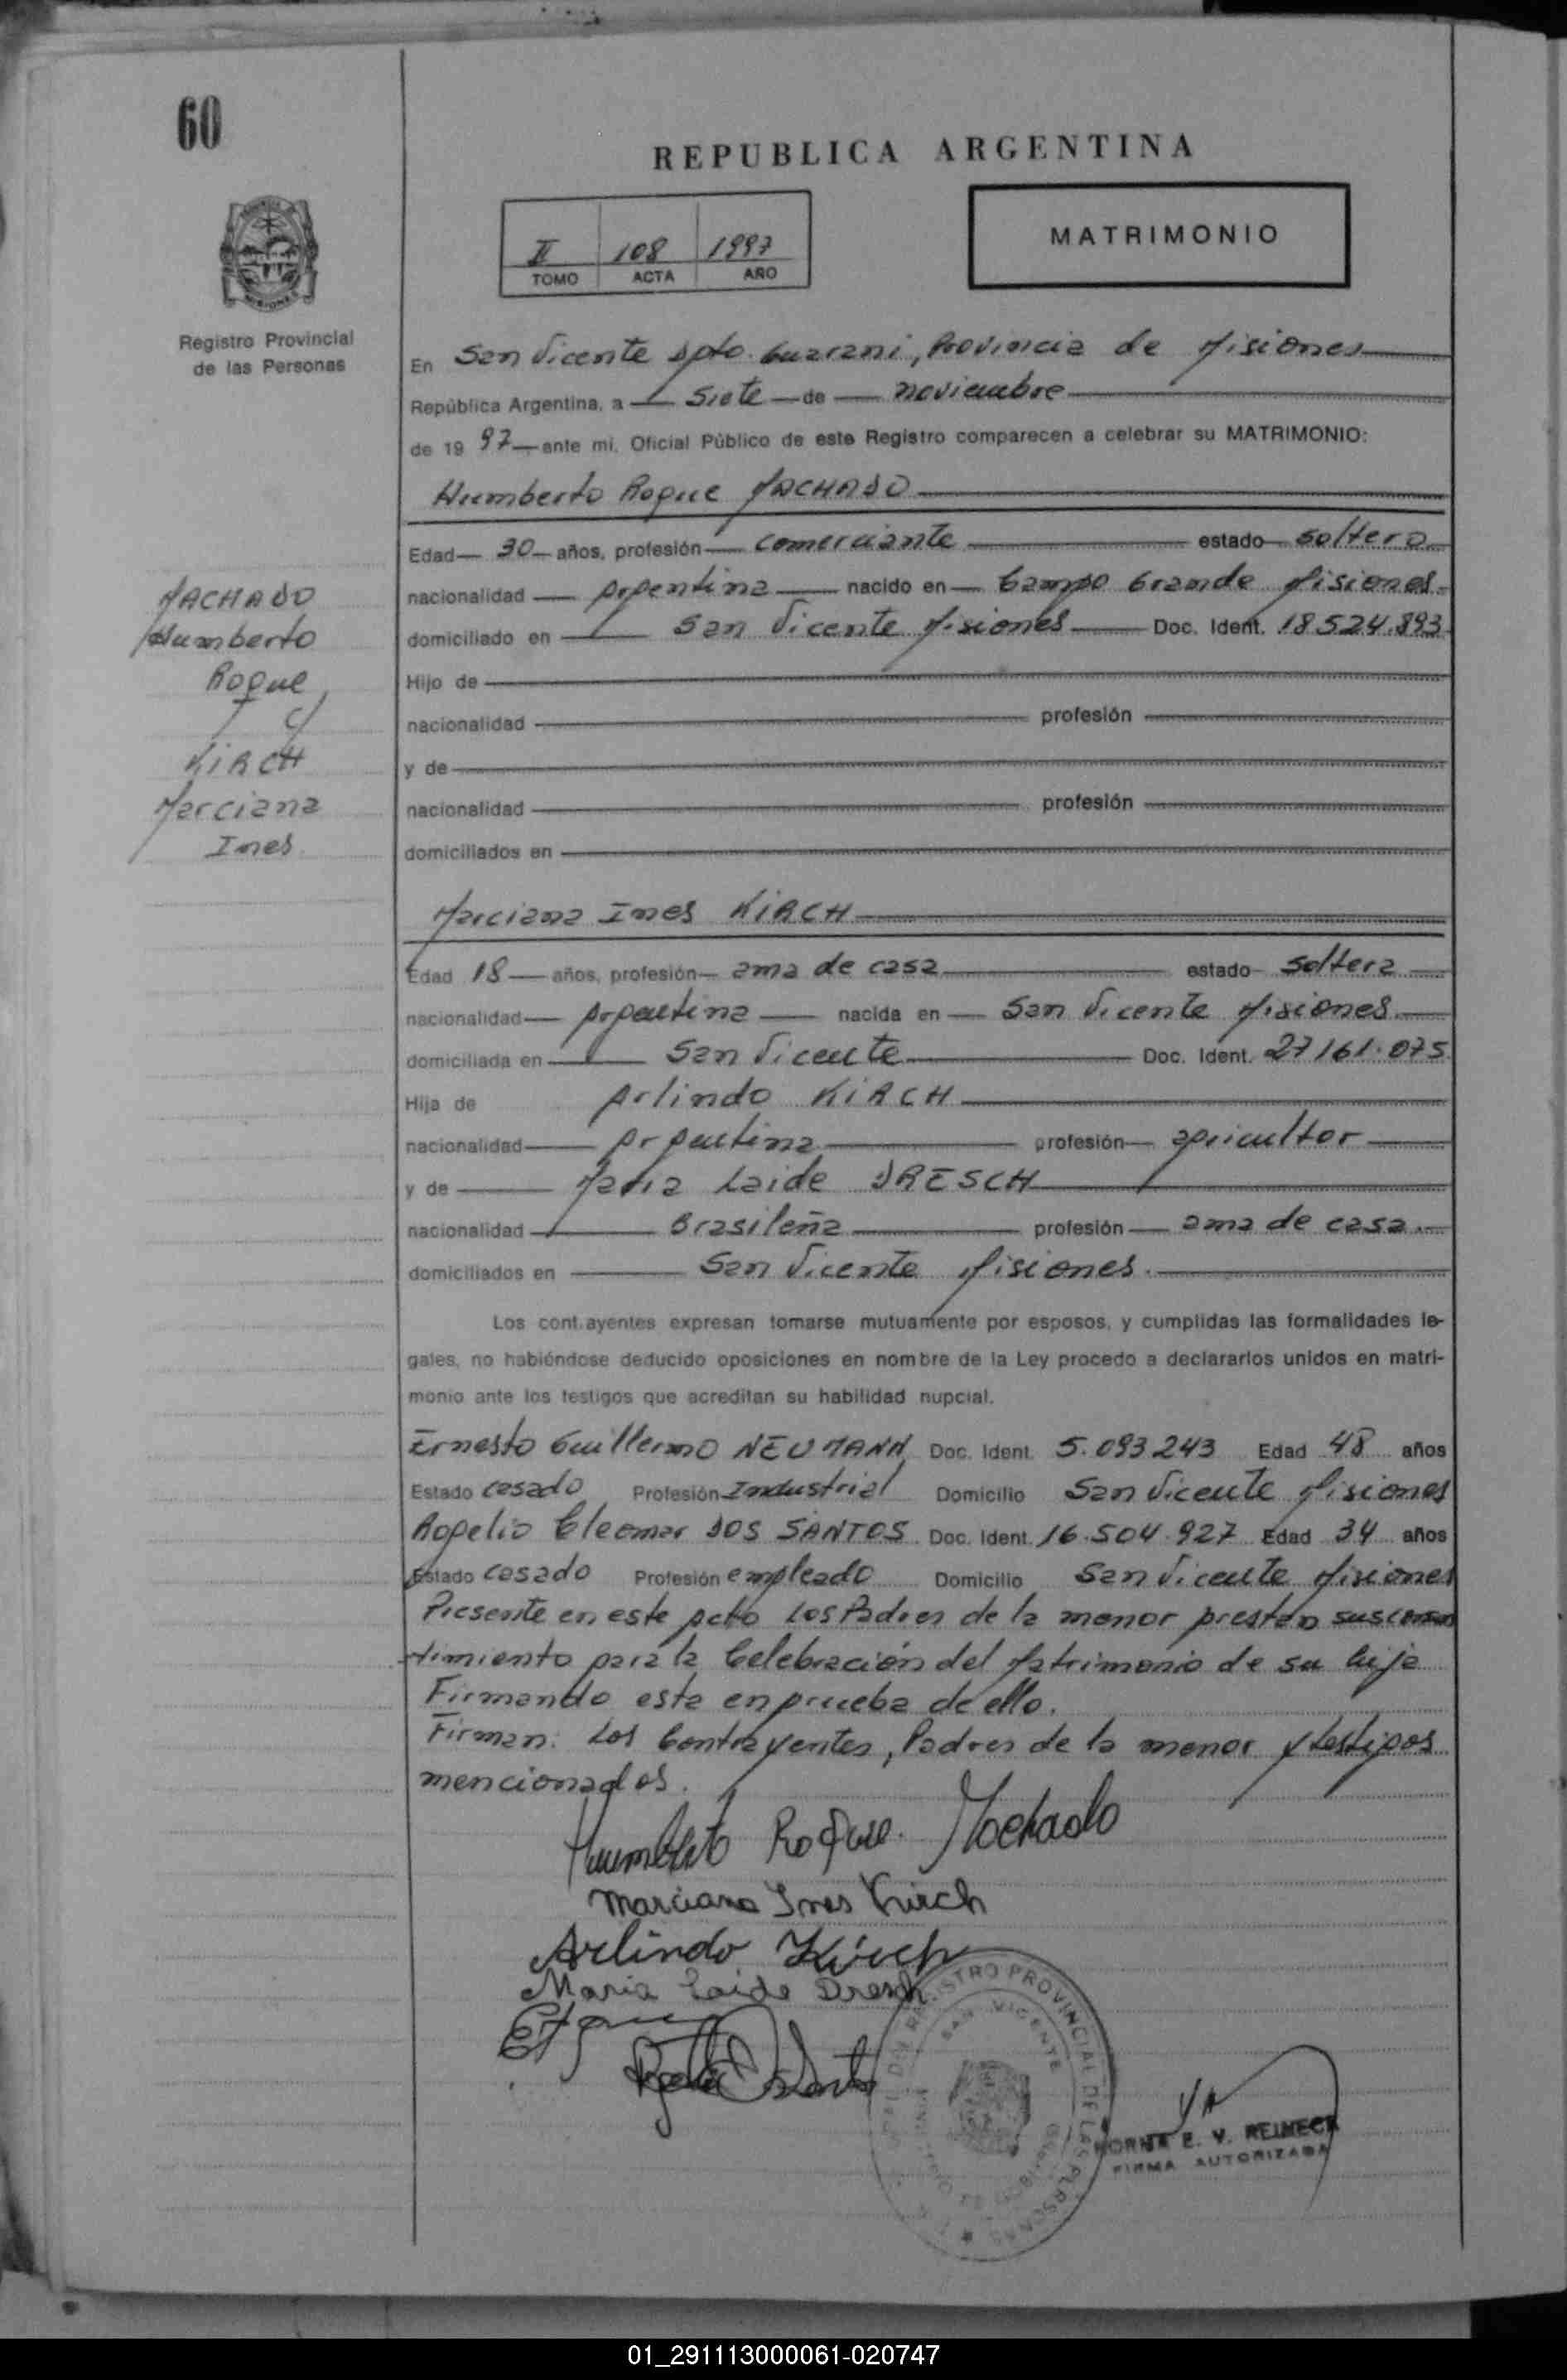 60
REPUBLICA ARGENTINA
II 108 1997
TOMO ACTA AÑO
MATRIMONIO
Registro Provincial
de las Personas
En San Vicente Dpto. Guarani, Provincia de Misiones
República Argentina, a Siete de noviembre
de 19 97 ante mi, Oficial Público de este Registro comparecen a celebrar su MATRIMONIO:
Humberto Roque MACHADO
Edad 30 años, profesión comerciante estado soltero
nacionalidad Argentina nacido en Campo Grande Misiones
domiciliado en San Vicente Misiones Doc. Ident. 18.524.893
Hijo de
nacionalidad profesión
y de
nacionalidad profesión
domiciliados en
MACHADO
Humberto
Roque
c/
KIRCH
Marciana
Ines
Marciana Ines KIRCH
Edad 18 años, profesión ama de casa estado soltera
nacionalidad Argentina nacida en San Vicente Misiones
domiciliada en San Vicente Doc. Ident. 27161.075
Hija de Arlindo KIRCH
nacionalidad Argentina profesión agricultor
y de Maria Laide DRESCH
nacionalidad Brasileña profesión ama de casa
domiciliados en San Vicente Misiones.
Los contrayentes expresan tomarse mutuamente por esposos, y cumplidas las formalidades le-
gales, no habiéndose deducido oposiciones en nombre de la Ley procedo a declararlos unidos en matri-
monio ante los testigos que acreditan su habilidad nupcial.
Ernesto Guillermo NEUMANN Doc. Ident. 5.093.243 Edad 48 años
Estado casado Profesión Industrial Domicilio San Vicente Misiones
Rogelio Cleomar DOS SANTOS Doc. Ident. 16.504.927 Edad 34 años
Estado casado Profesión empleado Domicilio San Vicente Misiones
Presente en este acto Los Padres de la menor prestan su consen
timiento para la Celebración del Matrimonio de su hija
Firmando esta en prueba de ello.
Firman: Los Contrayentes, Padres de la menor y testigos
mencionados.
Humberto Roque Machado
Marciana Ines Kirch
Arlindo Kirch
Maria Laide Dresch
REGISTRO PROVINCIAL DE LAS PERSONAS
SAN VICENTE
NORMA E. V. REINECK
FIRMA AUTORIZADA
01_291113000061-020747